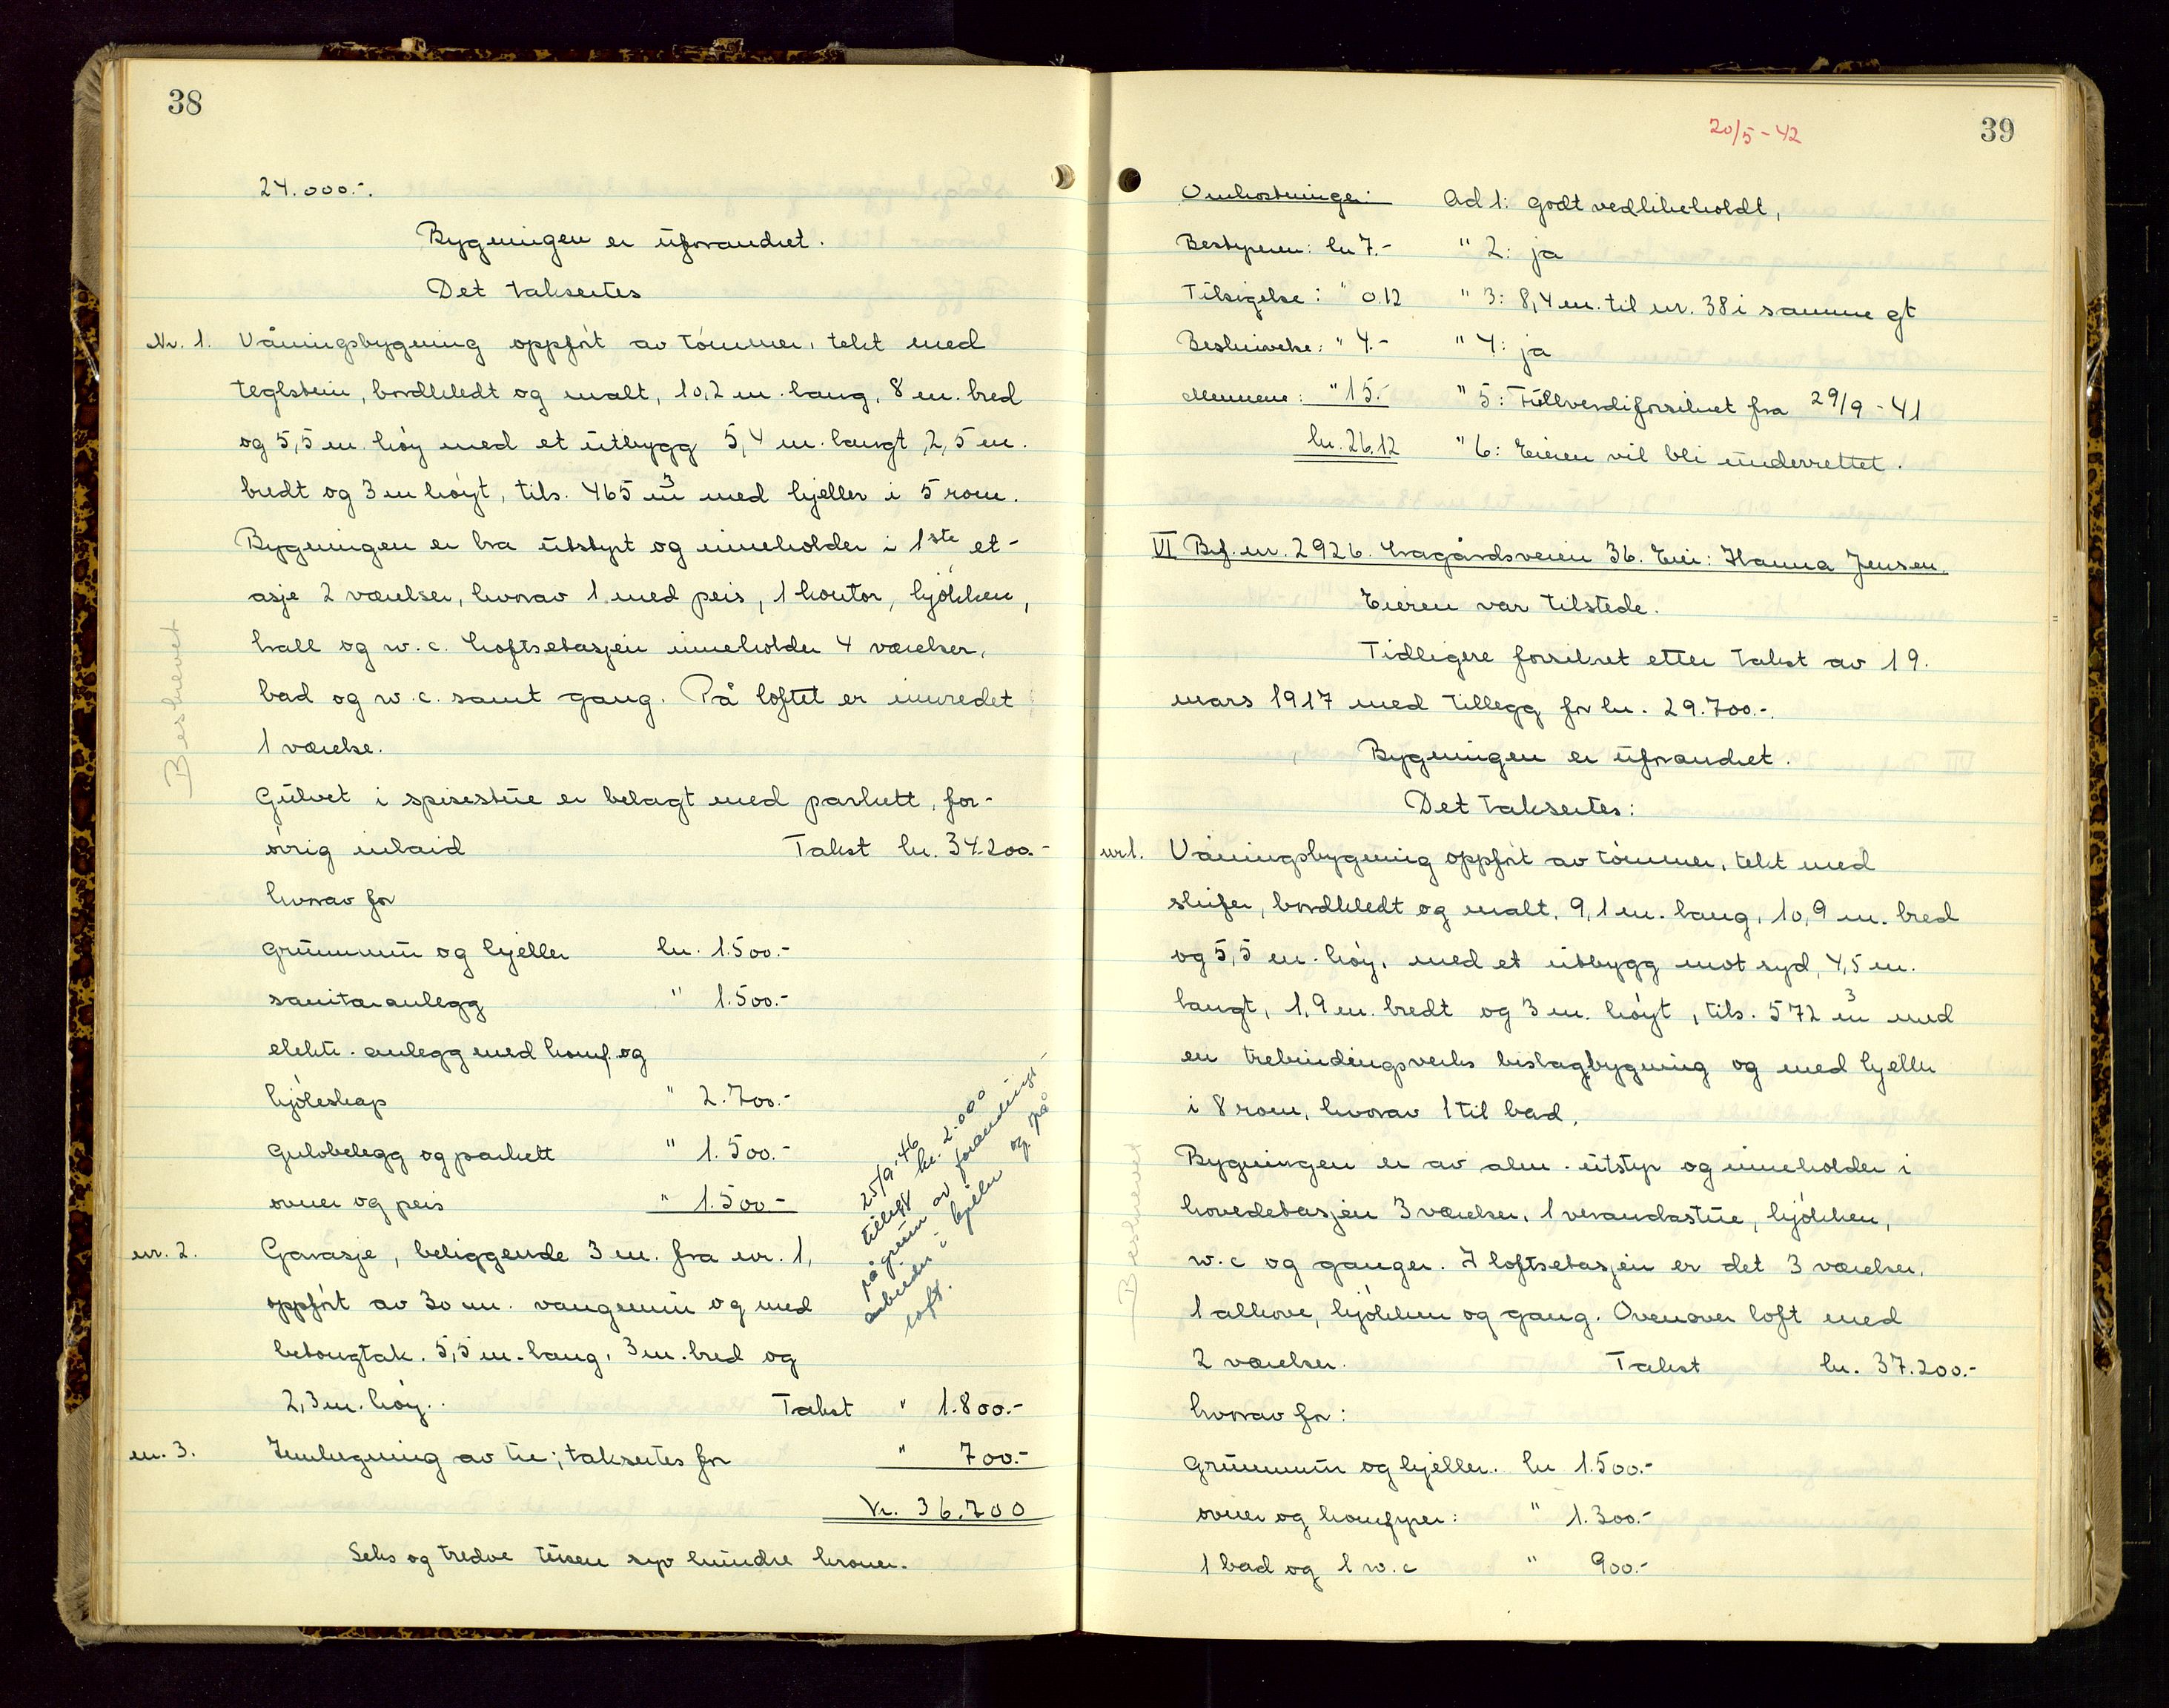 38
24.000.-.
Bygningen er uforandret.
Det takseres
Nr. 1. Våningsbygning oppført av tømmer, tekt med
teglstein, bordkledt og malt, 10,2 m. lang, 8 m. bred
og 5,5 m. høy med et utbygg 5,4 m. langt, 2,5 m.
bredt og 3 m høyt, tils. 465 m³ med kjeller i 5 rom.
Bygningen er bra utstyrt og inneholder i 1ste et-
asje 2 værelser, hvorav 1 med peis, 1 kontor, kjøkken,
hall og w.c. Loftsetasjen inneholder 4 værelser,
bad og w.c. samt gang. På loftet er innredet
1 værelse.
Beskrevet
Gulvet i spisestue er belagt med parkett, for-
øvrig inlaid Takst kr. 34.200.-
hvorav for
grunnmur og kjeller kr. 1.500.-
sanitæranlegg " 1.500.-
elektr. anlegg med komf. og
kjøleskap " 2.700.-
Gulvbelegg og parkett " 1.500.-
ovner og peis " 1.500.-
25/9-46
tillegg kr. 2.000
på grunn av forandrings-
arbeider i kjeller og på
loft.
nr. 2. Garasje, beliggende 3 m. fra nr. 1,
oppført av 30 cm. vangemur og med
betongtak. 5,5 m. lang, 3 m. bred og
2,3 m. høy. Takst " 1.800.-
nr. 3. Innhegning av tre; takseres for " 700.-
Kr. 36.700
Seks og tredve tusen syv hundre kroner.
39
20/5-42
Omkostninger: Ad 1: godt vedlikeholdt,
Bestyreren: kr 7.- " 2: ja
Tilsigelse: " 0.12 " 3: 8,4 m. til nr. 38 i samme gt
Beskrivelse: " 4.- " 4: ja
Mennene: " 15.- " 5: Fullverdiforsikret fra 29/9-41
kr. 26.12 " 6: Eieren vil bli underrettet.
VI Brf. nr. 2926. Kragårdsveien 36. Eier: Hanna Jensen.
Eieren var tilstede.
Tidligere forsikret etter takst av 19.
mars 1917 med tillegg for kr. 29.700.-.
Bygningen er uforandret.
Det takseres:
nr 1. Våningsbygning oppført av tømmer, tekt med
skifer, bordkledt og malt, 9,1 m. lang, 10,9 m. bred
og 5,5 m. høy, med et utbygg mot syd, 4,5 m.
langt, 1,9 m. bredt og 3 m. høyt, tils. 572 m³ med
en trebindingsverks bislagbygning og med kjeller
i 8 rom, hvorav 1 til bad.
Beskrevet
Bygningen er av alm. utstyr og inneholder i
hovedetasjen 3 værelser, 1 verandastue, kjøkken,
w.c og ganger. I loftsetasjen er det 3 værelser,
1 alkove, kjøkken og gang. Ovenover loft med
2 værelser. Takst kr. 37.200.-
hvorav for:
Grunnmur og kjeller. kr 1.500.-
ovner og komfyrer: " 1.300.-
1 bad og 1 w.c " 900.-